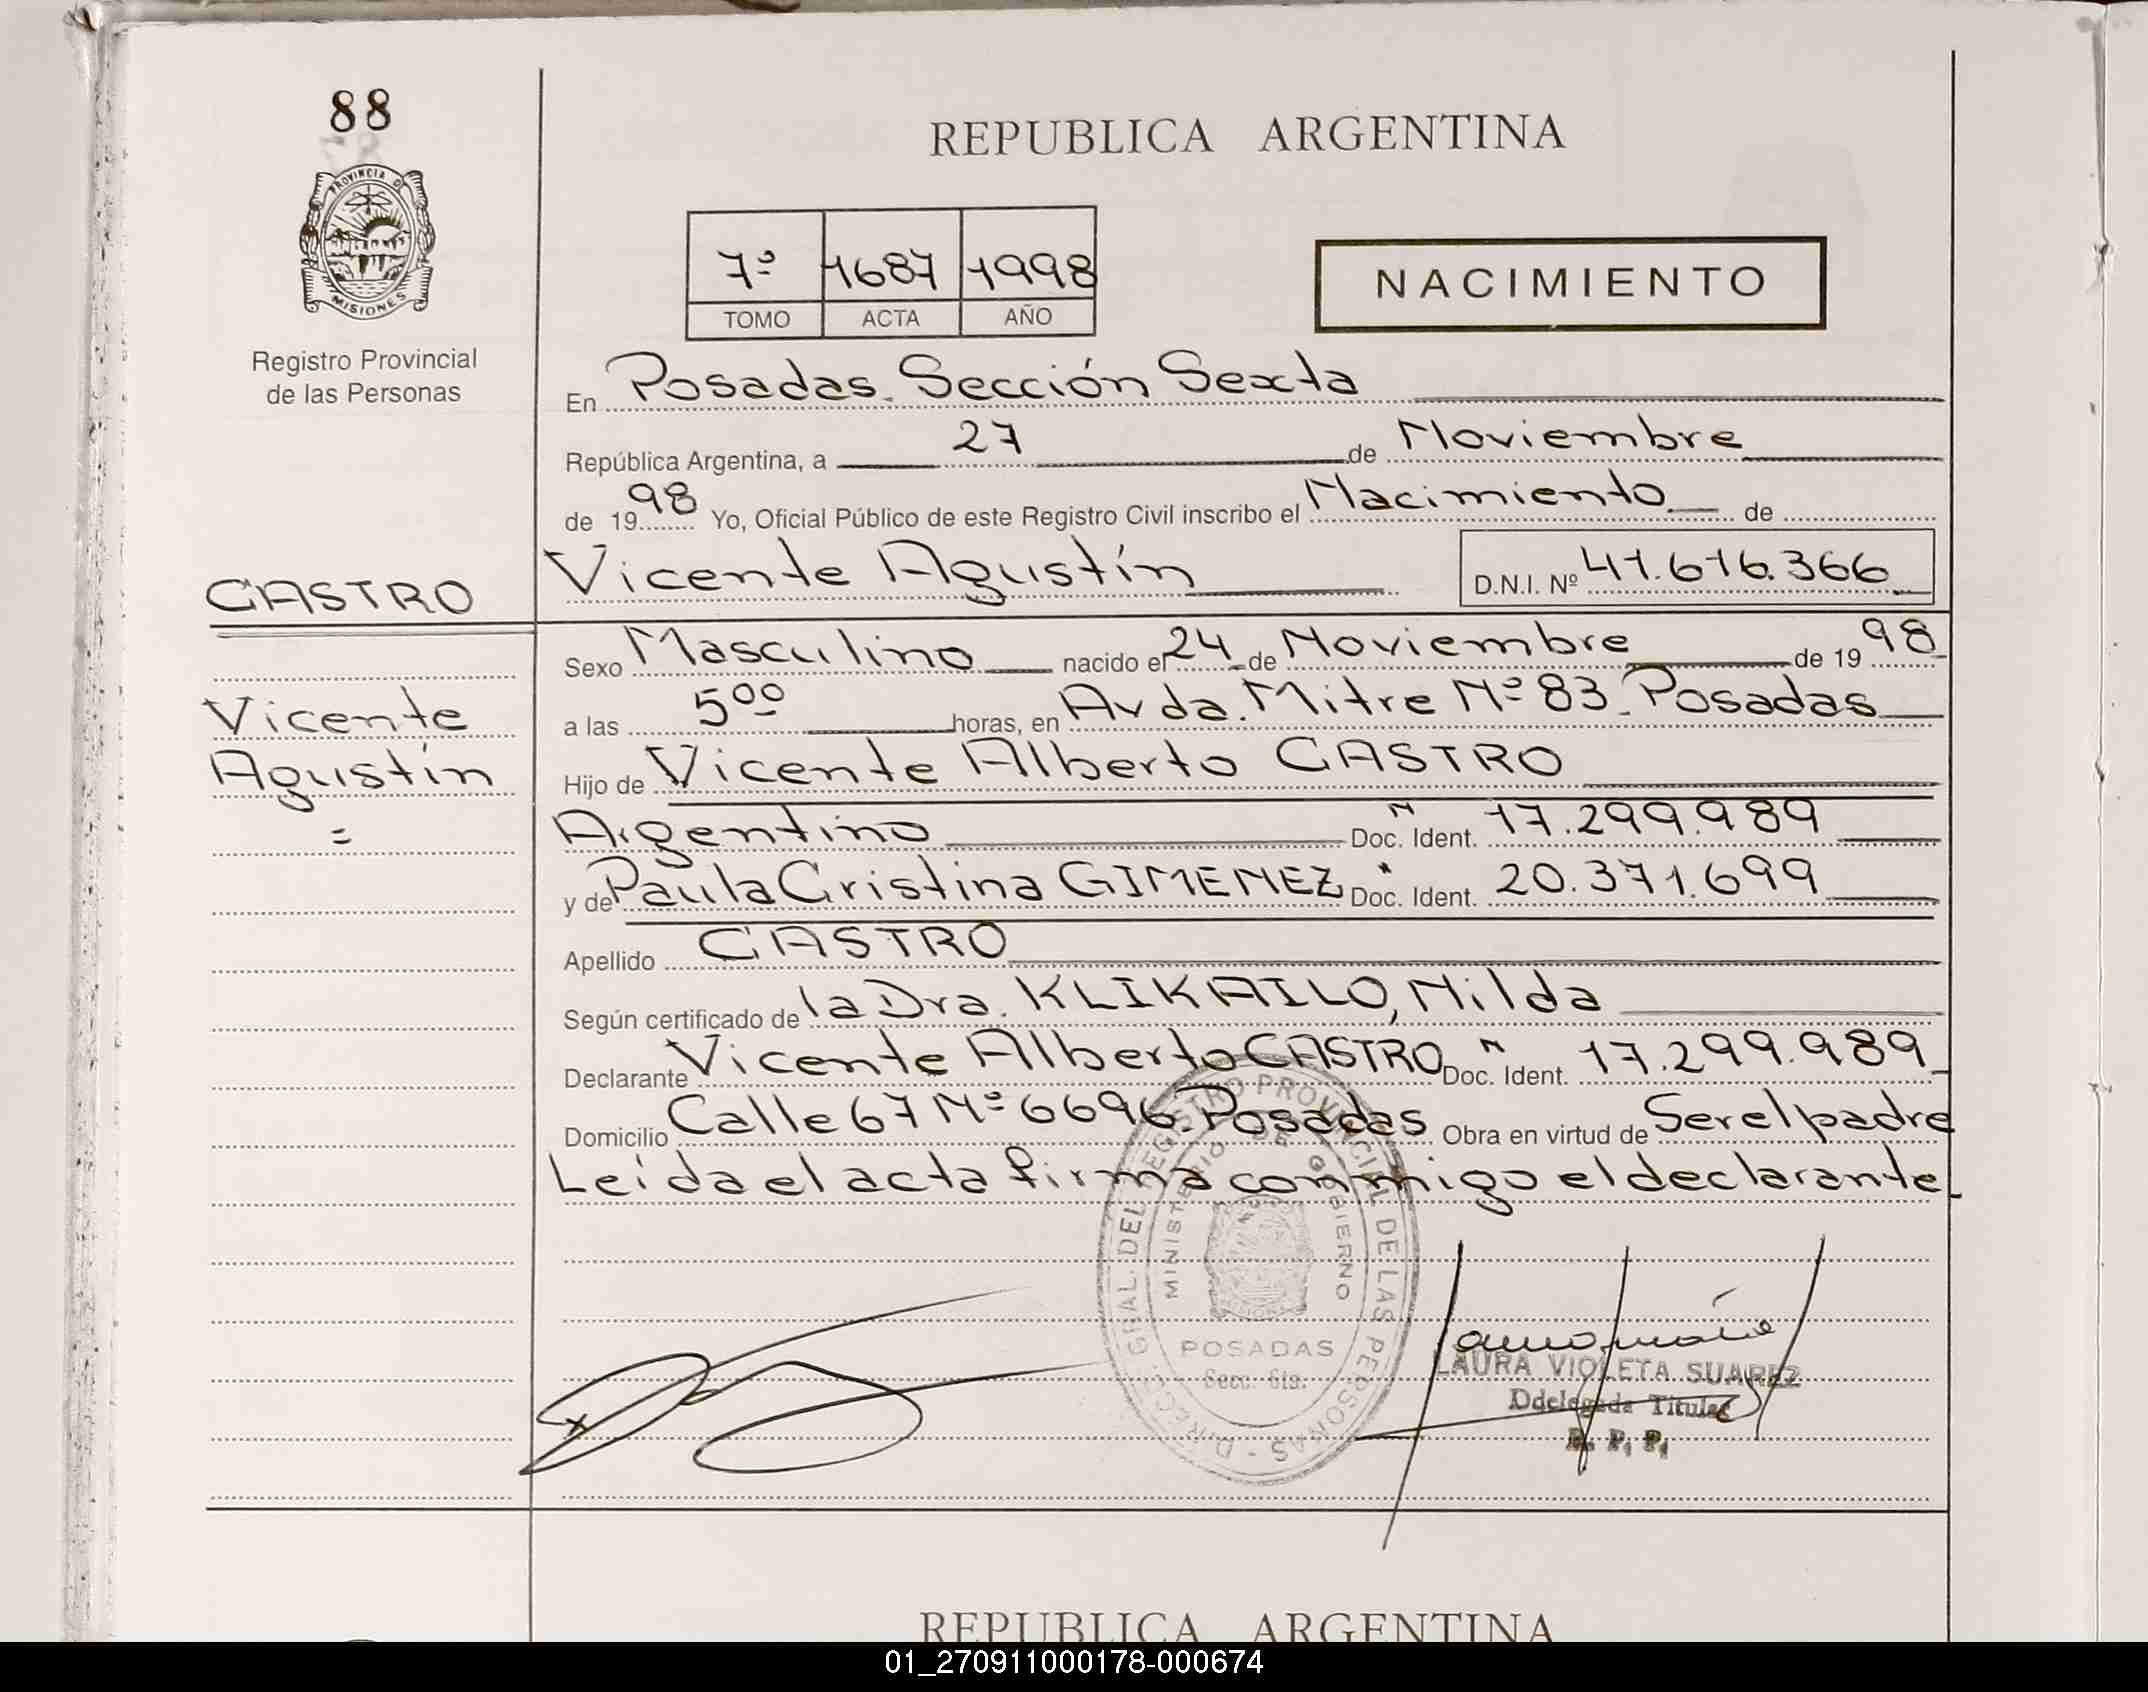 88
PROVINCIA D
MISIONES
Registro Provincial
de las Personas
CASTRO
Vicente
Agustín
=
REPUBLICA ARGENTINA
7º 1687 1998
TOMO ACTA AÑO
NACIMIENTO
En Posadas. Sección Sexta
República Argentina, a 27 de Noviembre
de 1998 Yo, Oficial Público de este Registro Civil inscribo el Nacimiento de
Vicente Agustín D.N.I. Nº 41.616.366
Sexo Masculino nacido el 24 de Noviembre de 1998
a las 5⁰⁰ horas, en Avda. Mitre Nº 83. Posadas
Hijo de Vicente Alberto CASTRO
Argentino Doc. Ident. N 17.299.989
y de Paula Cristina GIMENEZ Doc. Ident. " 20.371.699
Apellido CASTRO
Según certificado de la Dra. KLIKAILO, Nilda
Declarante Vicente Alberto CASTRO Doc. Ident. N 17.299.989
Domicilio Calle 67 Nº 6696. Posadas Obra en virtud de Ser el padre
Leída el acta firma conmigo el declarante
DIRECC. GRAL. DEL REGISTRO PROVINCIAL DE LAS PERSONAS
MINISTERIO DE GOBIERNO
POSADAS
Secc. 6ta.
LAURA VIOLETA SUAREZ
Ddelegada Titular
R. P. P.
REPUBLICA ARGENTINA
01_270911000178-000674